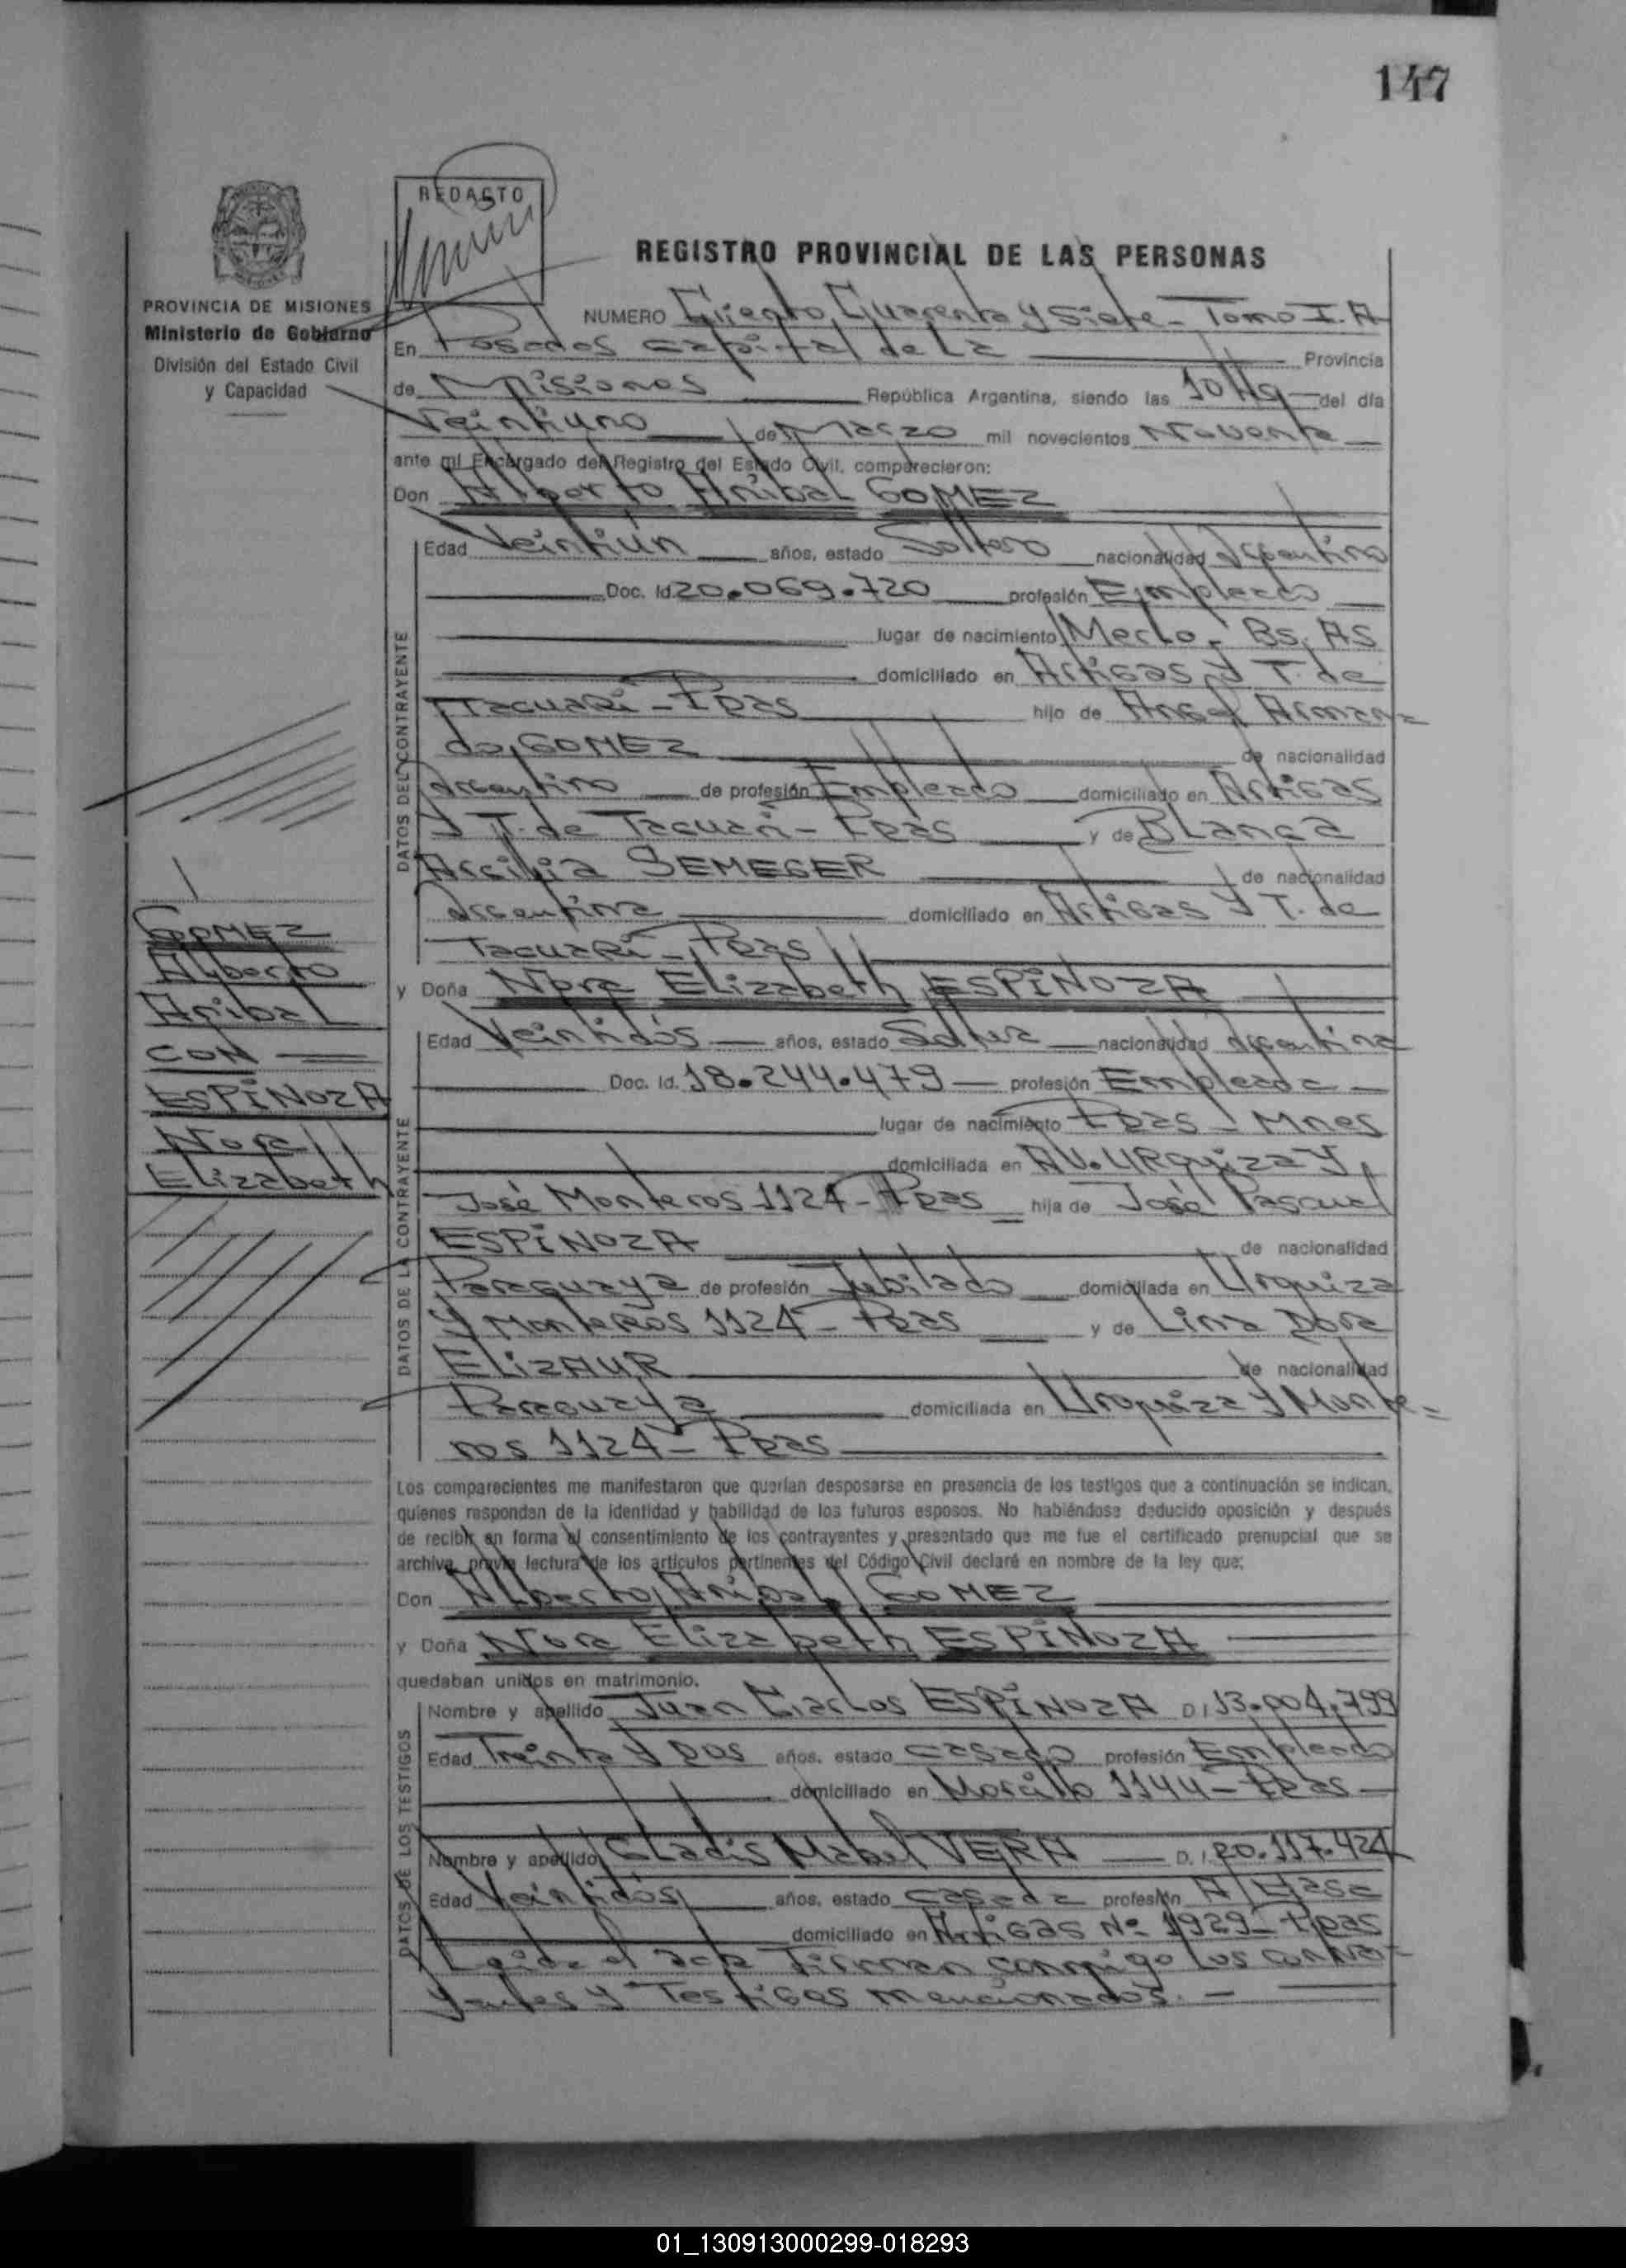 147
REDACTO
REGISTRO PROVINCIAL DE LAS PERSONAS
PROVINCIA DE MISIONES
Ministerio de Gobierno
División del Estado Civil
y Capacidad
NUMERO Ciento Cuarenta y Siete - Tomo I. A
En Posadas Capital de La Provincia
de Misiones República Argentina, siendo las 10 Hs del día
Veintiuno de Marzo mil novecientos Noventa
ante mi Encargado del Registro del Estado Civil, comparecieron:
Don Alberto Anibal GOMEZ
DATOS DEL CONTRAYENTE
Edad Veintiún años, estado Soltero nacionalidad Argentino
Doc. Id. 20.069.720 profesión Empleado
lugar de nacimiento Merlo - Bs. AS
domiciliado en Artigas y T. de
Tacuarí - Pdas hijo de Angel Arman=
do GOMEZ de nacionalidad
Argentino de profesión Empleado domiciliado en Artigas
y T. de Tacuarí - Pdas y de Blanca
Arcilia SEMEGER de nacionalidad
Argentina domiciliado en Artigas y T. de
Tacuarí - Pdas
y Doña Nora Elizabeth ESPINOZA
DATOS DE LA CONTRAYENTE
Edad Veintidós años, estado Soltera nacionalidad Argentina
Doc. Id. 18.244.479 profesión Empleada
lugar de nacimiento Pdas - Mnes
domiciliada en AV. URquiza y
José Monteros 1124 - Pdas hija de José Pascual
ESPINOZA de nacionalidad
Paraguaya de profesión Jubilado domiciliada en Urquiza
y Monteros 1124 - Pdas y de Lina Dora
ELIZAUR de nacionalidad
Paraguaya domiciliada en Urquiza y Monte=
ros 1124 - Pdas
GOMEZ
Alberto
Anibal
CON
ESPINOZA
Nora
Elizabeth
Los comparecientes me manifestaron que querían desposarse en presencia de los testigos que a continuación se indican,
quienes responden de la identidad y habilidad de los futuros esposos. No habiéndose deducido oposición y después
de recibir en forma el consentimiento de los contrayentes y presentado que me fue el certificado prenupcial que se
archiva, previa lectura de los artículos pertinentes del Código Civil declaré en nombre de la ley que:
Don Alberto Anibal GOMEZ
y Doña Nora Elizabeth ESPINOZA
quedaban unidos en matrimonio.
DATOS DE LOS TESTIGOS
Nombre y apellido Juan Carlos ESPINOZA D.I 13.004.799
Edad Treinta y Dos años, estado Casado profesión Empleado
domiciliado en Morcillo 1144 - Pdas
Nombre y apellido Gladis Mabel VERA D.I. 20.117.424
Edad Veintidós años, estado Casada profesión A/ Casa
domiciliado en Artigas Nº 1929 - Pdas
Leida el acta Firman conmigo los contra=
yentes y Testigos mencionados. -
01_130913000299-018293